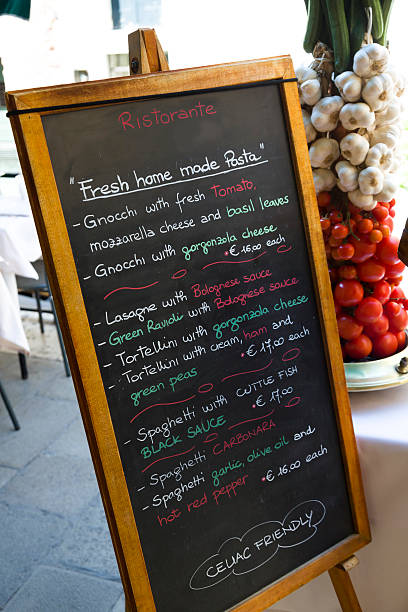 Ristorante
"Fresh home made Pasta"
- Gnocchi with fresh Tomato,
mozzarella cheese and basil leaves
- Gnocchi with gorgonzola cheese
€ 16.00 each
- Lasagne with Bolognese sauce
- Green Ravioli with Bolognese sauce
- Tortellini with gorgonzola cheese
- Tortellini with cream, ham and
green peas € 17.00 each
- Spaghetti with CUTTLE FISH
BLACK SAUCE € 17.00
- Spaghetti CARBONARA
- Spaghetti garlic, olive oil and
hot red pepper € 16.00 each
CELIAC FRIENDLY